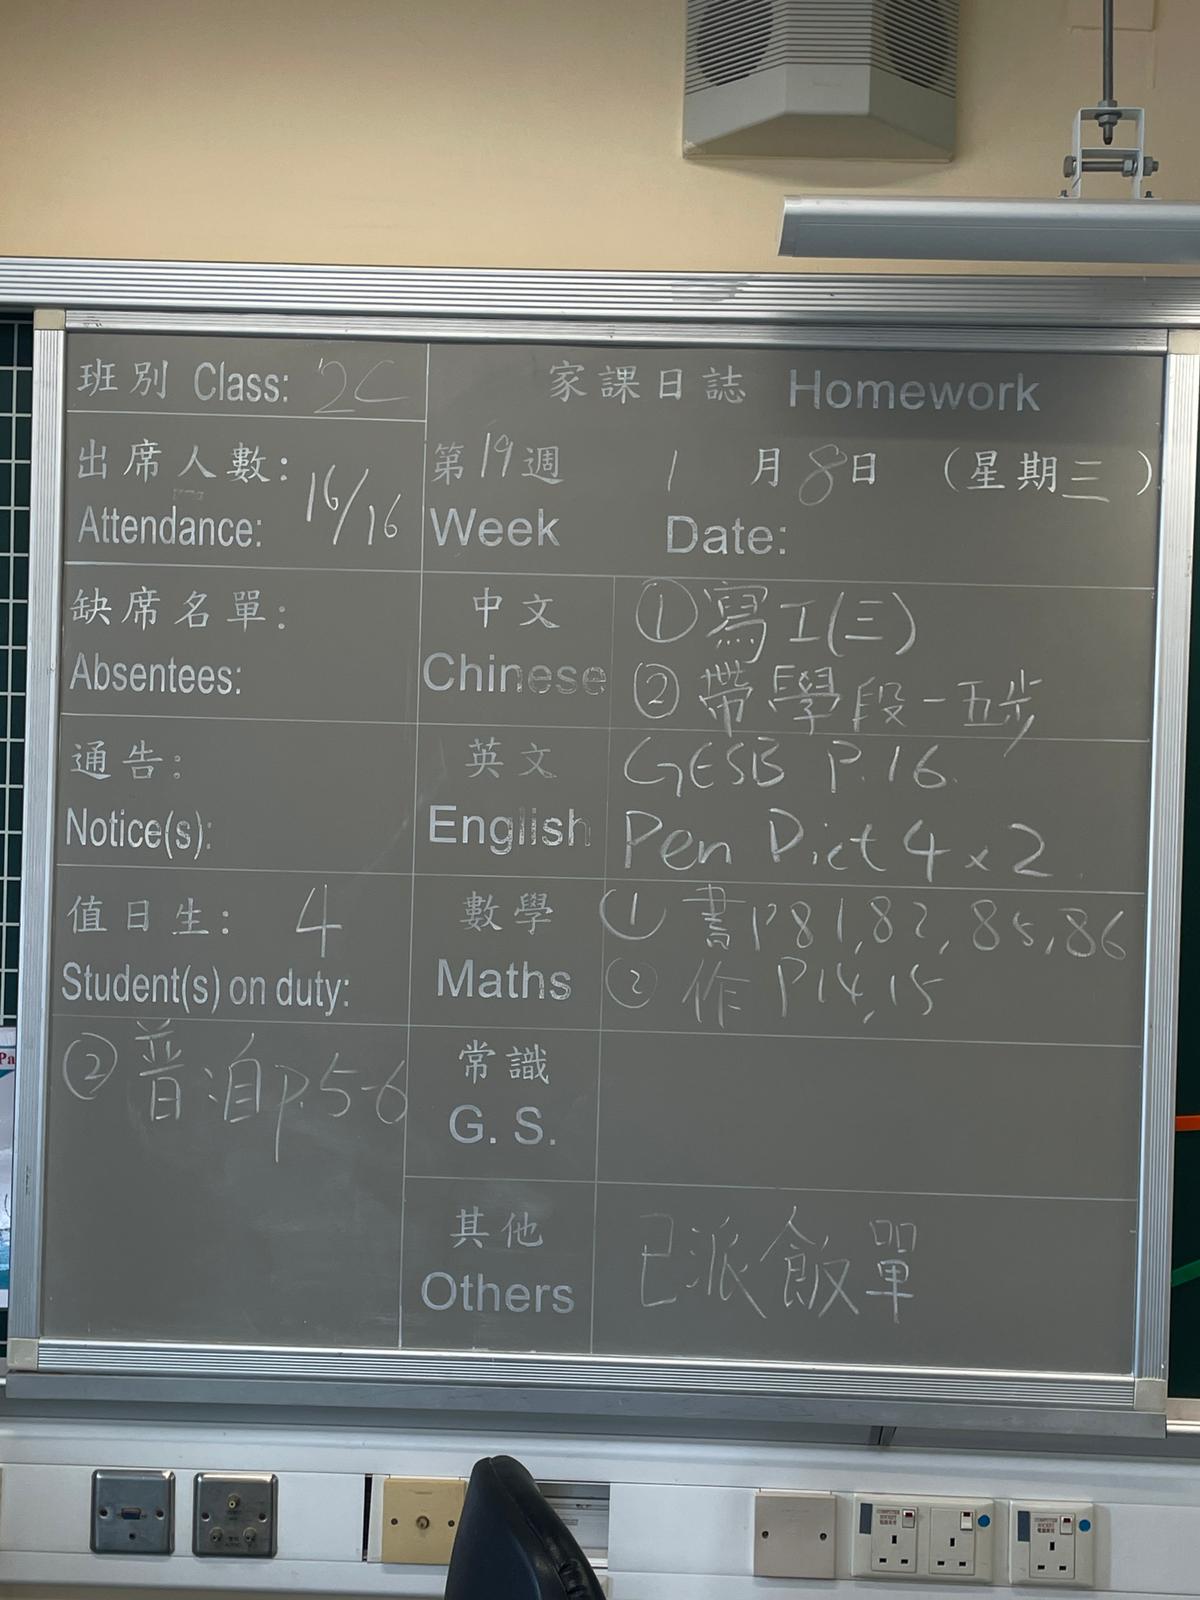 班別 Class: 2C
出席人數: 16/16
Attendance:
缺席名單:
Absentees:
通告:
Notice(s):
值日生: 4
Student(s) on duty:
② 普 自 p.5-6
家課日誌 Homework
第19週 1月8日 (星期三)
Week Date:
中文
Chinese
① 寫工(三)
② 帶學段一五步
英文
English
GESB P.16.
Pen Dict 4 x 2.
數學
Maths
① 書P81,82,85,86
② 作 P14,15
常識
G. S.
其他
Others
已派飯單
COMPUTER
SOCKET
COMPUTER
SOCKET
Pa